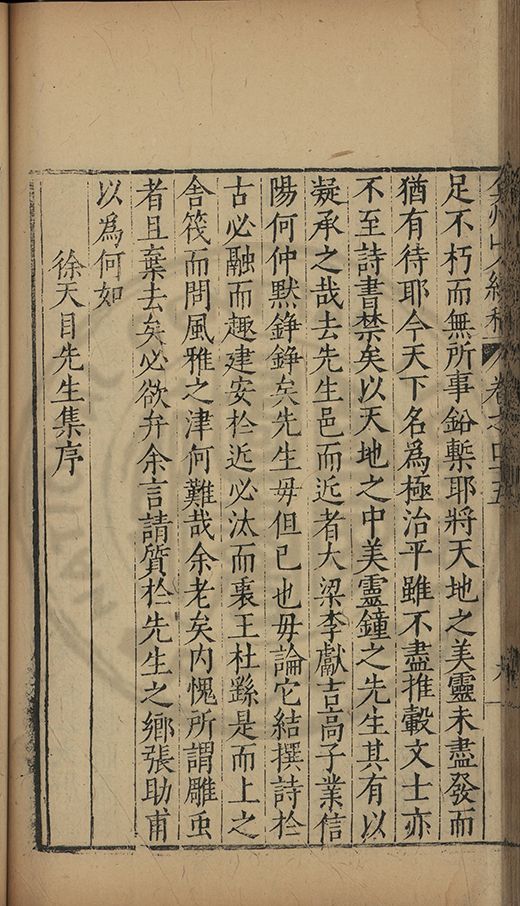 足不朽而無所事鉛槧耶將天地之美靈未盡發而
猶有待耶今天下名爲極治平雖不盡推轂文士亦
不至詩書禁矣以天地之中美靈鐘之先生其有以
凝承之哉去先生邑而近者大梁李獻吉高子業信
陽何仲默錚錚矣先生毋但已也毋論它結撰詩於
古必融而趣建安於近必汰而裏王杜繇是而上之
舍筏而問風雅之津何難哉余老矣内愧所謂雕虫
者且棄去矣必欲弁余言請質於先生之鄉張助甫
以為何如
徐天目先生集序